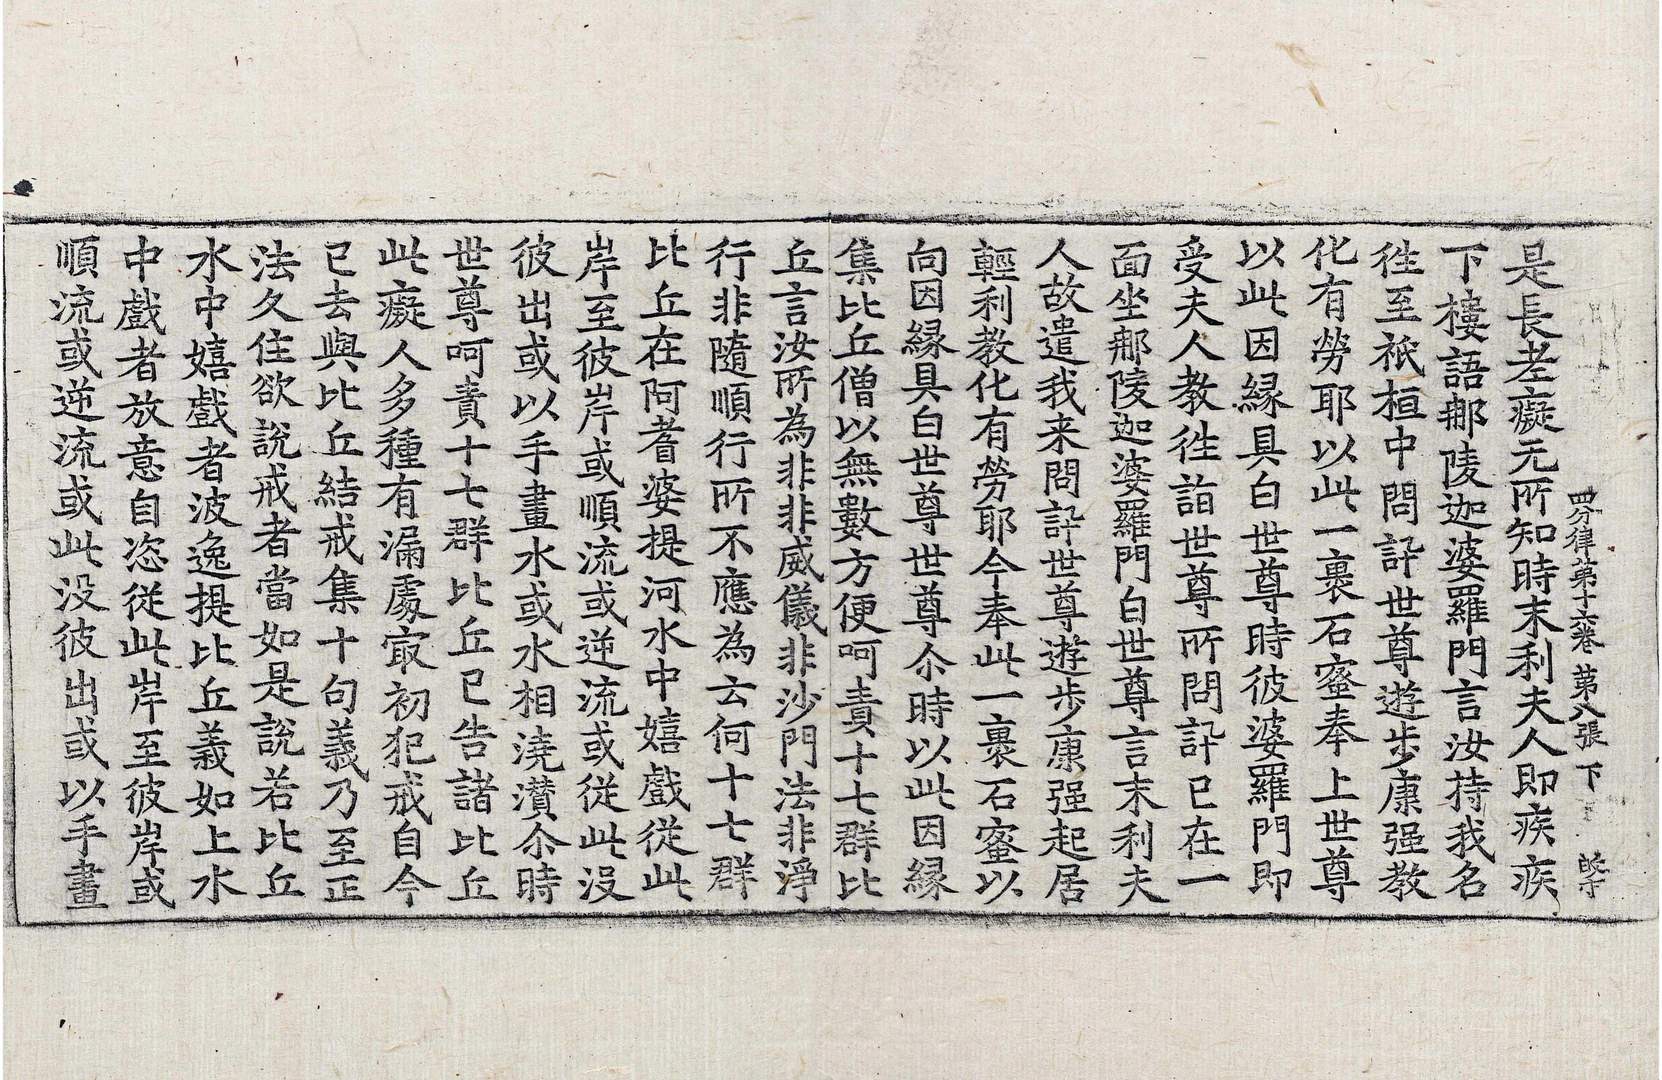 四分律第十六卷 第八張 下
是長老癡无所知時末利夫人即疾疾
下樓語㮈陵迦婆羅門言汝持我名
徃至祇桓中問訊世尊遊步康强教
化有勞耶以此一裹石蜜奉上世尊
以此因縁具白世尊時彼婆羅門即
受夫人教徃詣世尊所問訊已在一
面坐㮈陵迦婆羅門白世尊言末利夫
人故遣我来問訊世尊遊步康强起居
輕利教化有勞耶今奉此一裹石蜜以
向因縁具白世尊世尊尒時以此因縁
集比丘僧以無數方便呵責十七群比
丘言汝所為非非威儀非沙門法非淨
行非隨順行所不應為云何十七群
比丘在阿耆婆提河水中嬉戲從此
岸至彼岸或順流或逆流或從此沒
彼出或以手畫水或水相澆灒尒時
世尊呵責十七群比丘已告諸比丘
此癡人多種有漏處㝡初犯戒自今
已去與比丘結戒集十句義乃至正
法久住欲說戒者當如是說若比丘
水中嬉戲者波逸提比丘義如上水
中戲者放意自恣從此岸至彼岸或
順流或逆流或此没彼出或以手畫